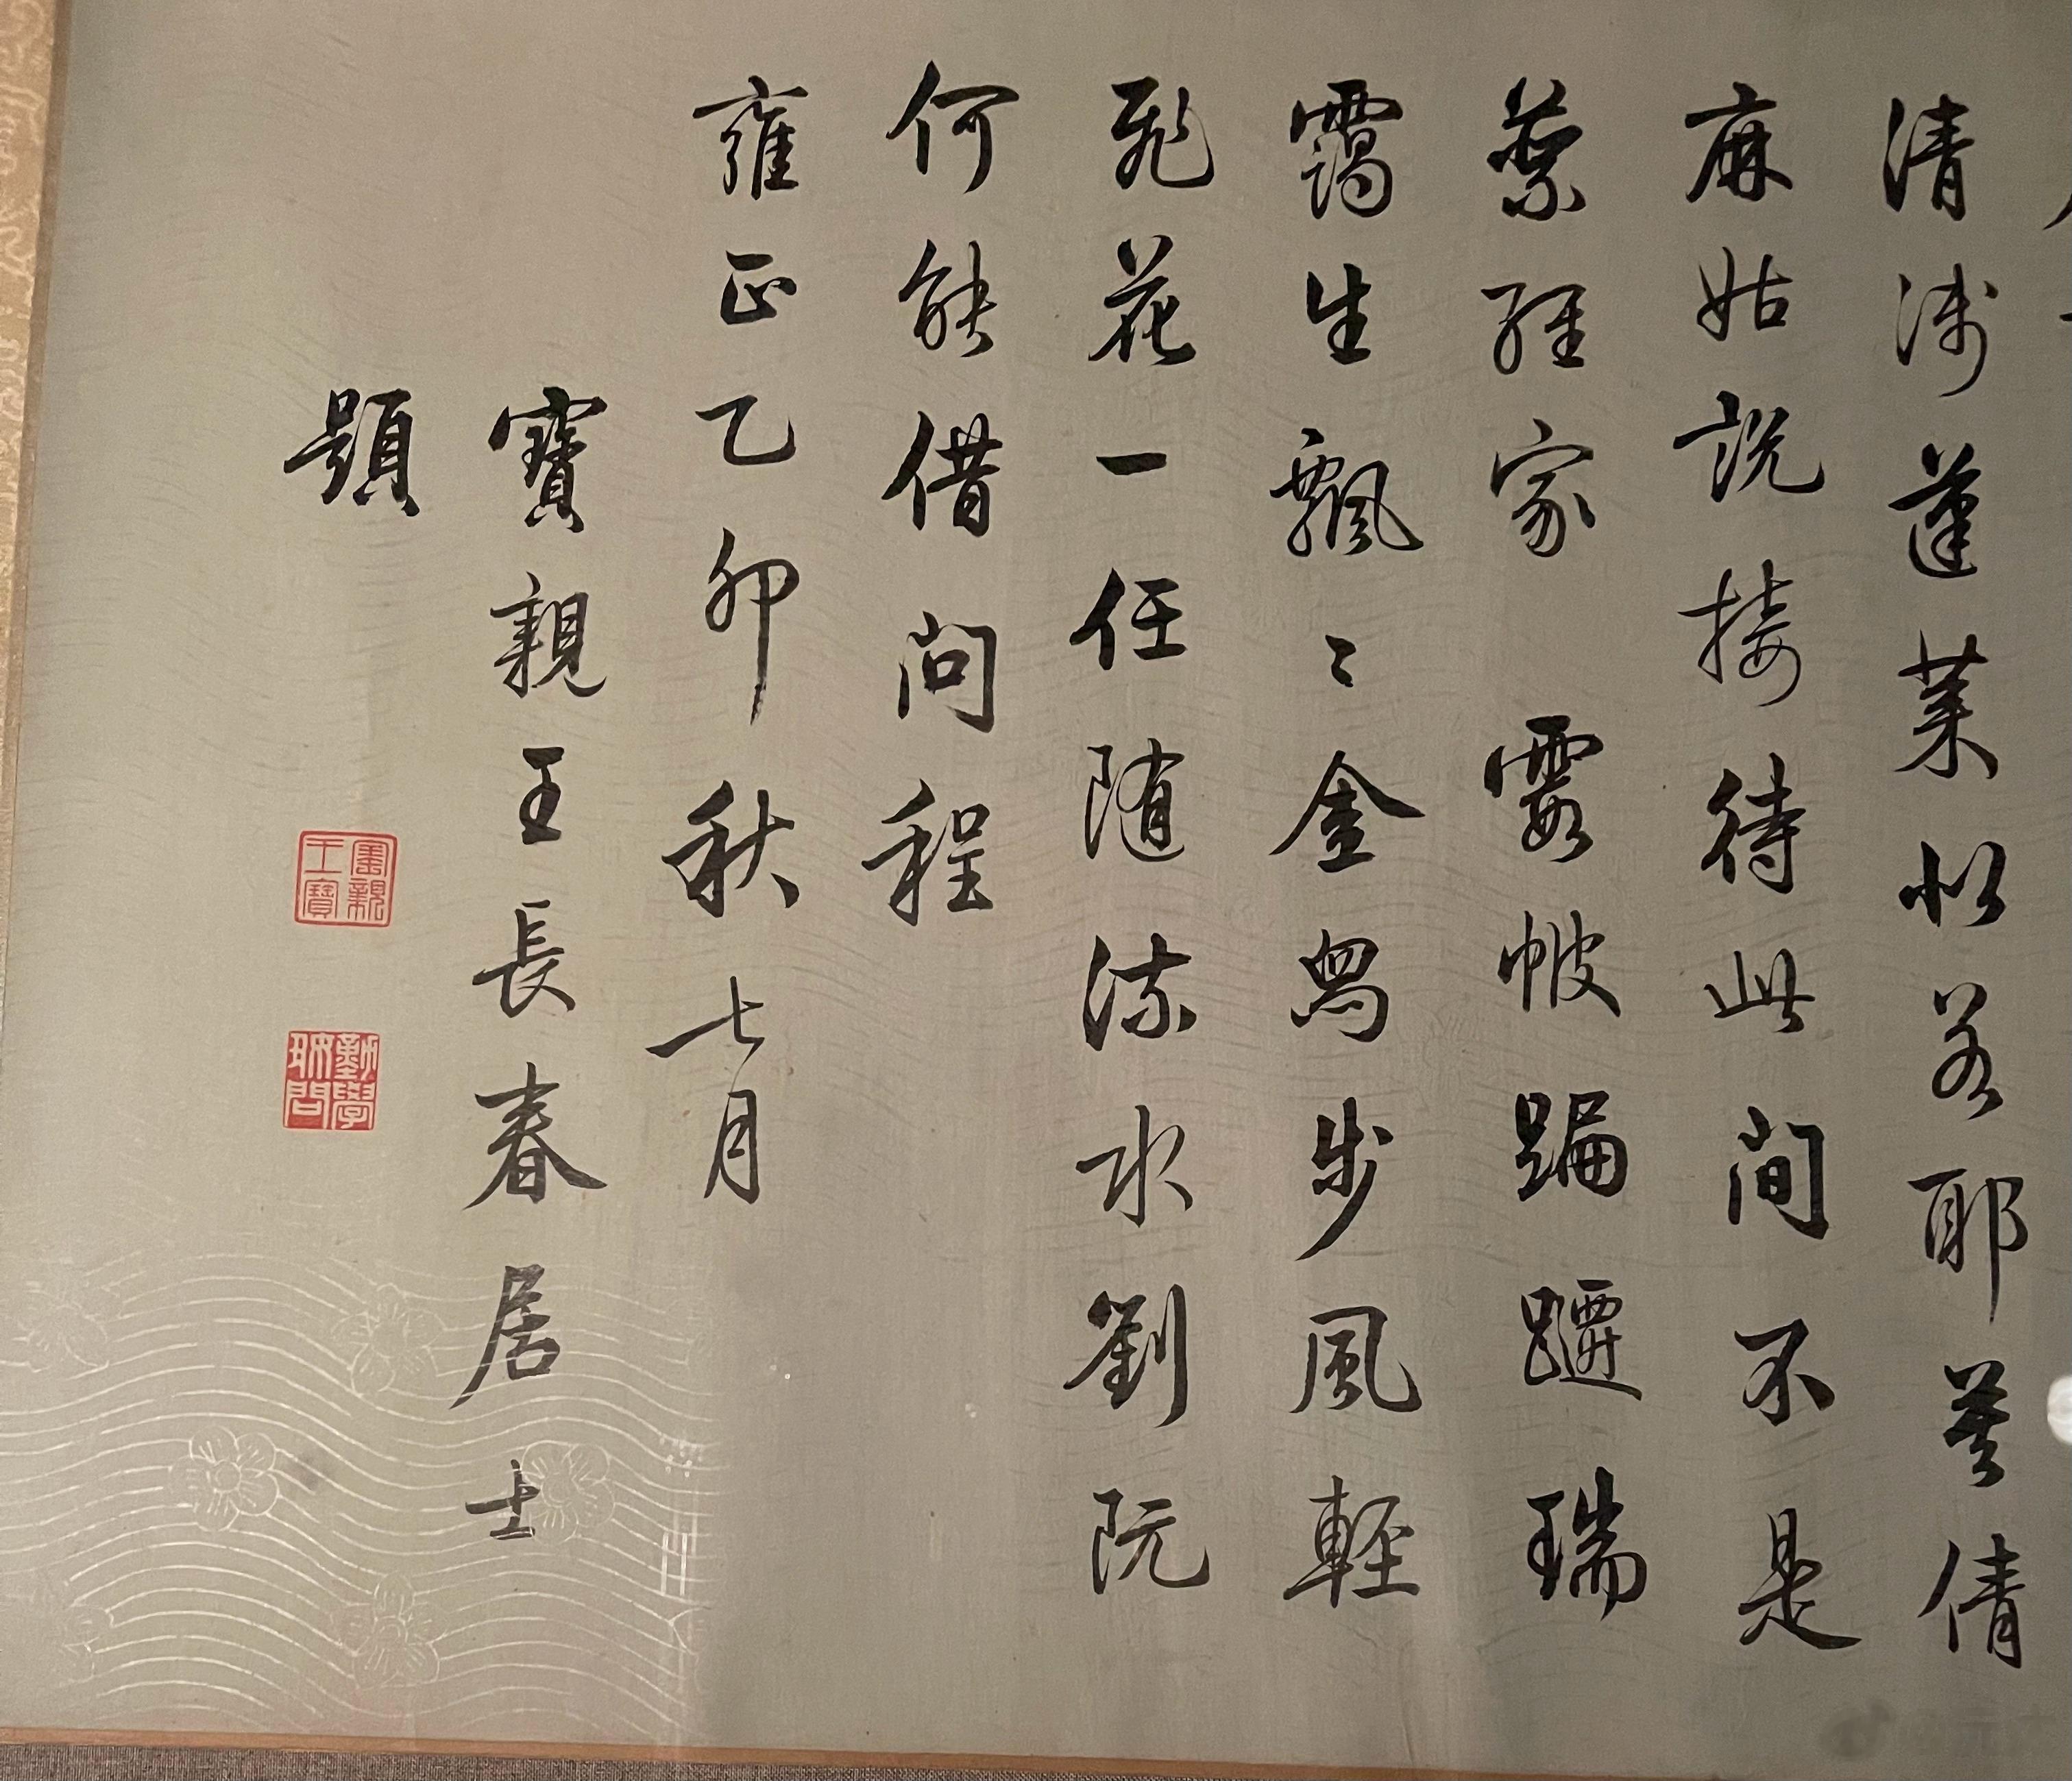 清淺蓬萊似若耶英倩
麻姑說接待此間不是
蔡經家 霞帔蹁躚瑞
靄生飄〻金舄步風輕
飛花一任隨流水劉阮
何能借問程
雍正乙卯秋七月
寶親王長春居士
題
寶親
王寶
勤學
耽問